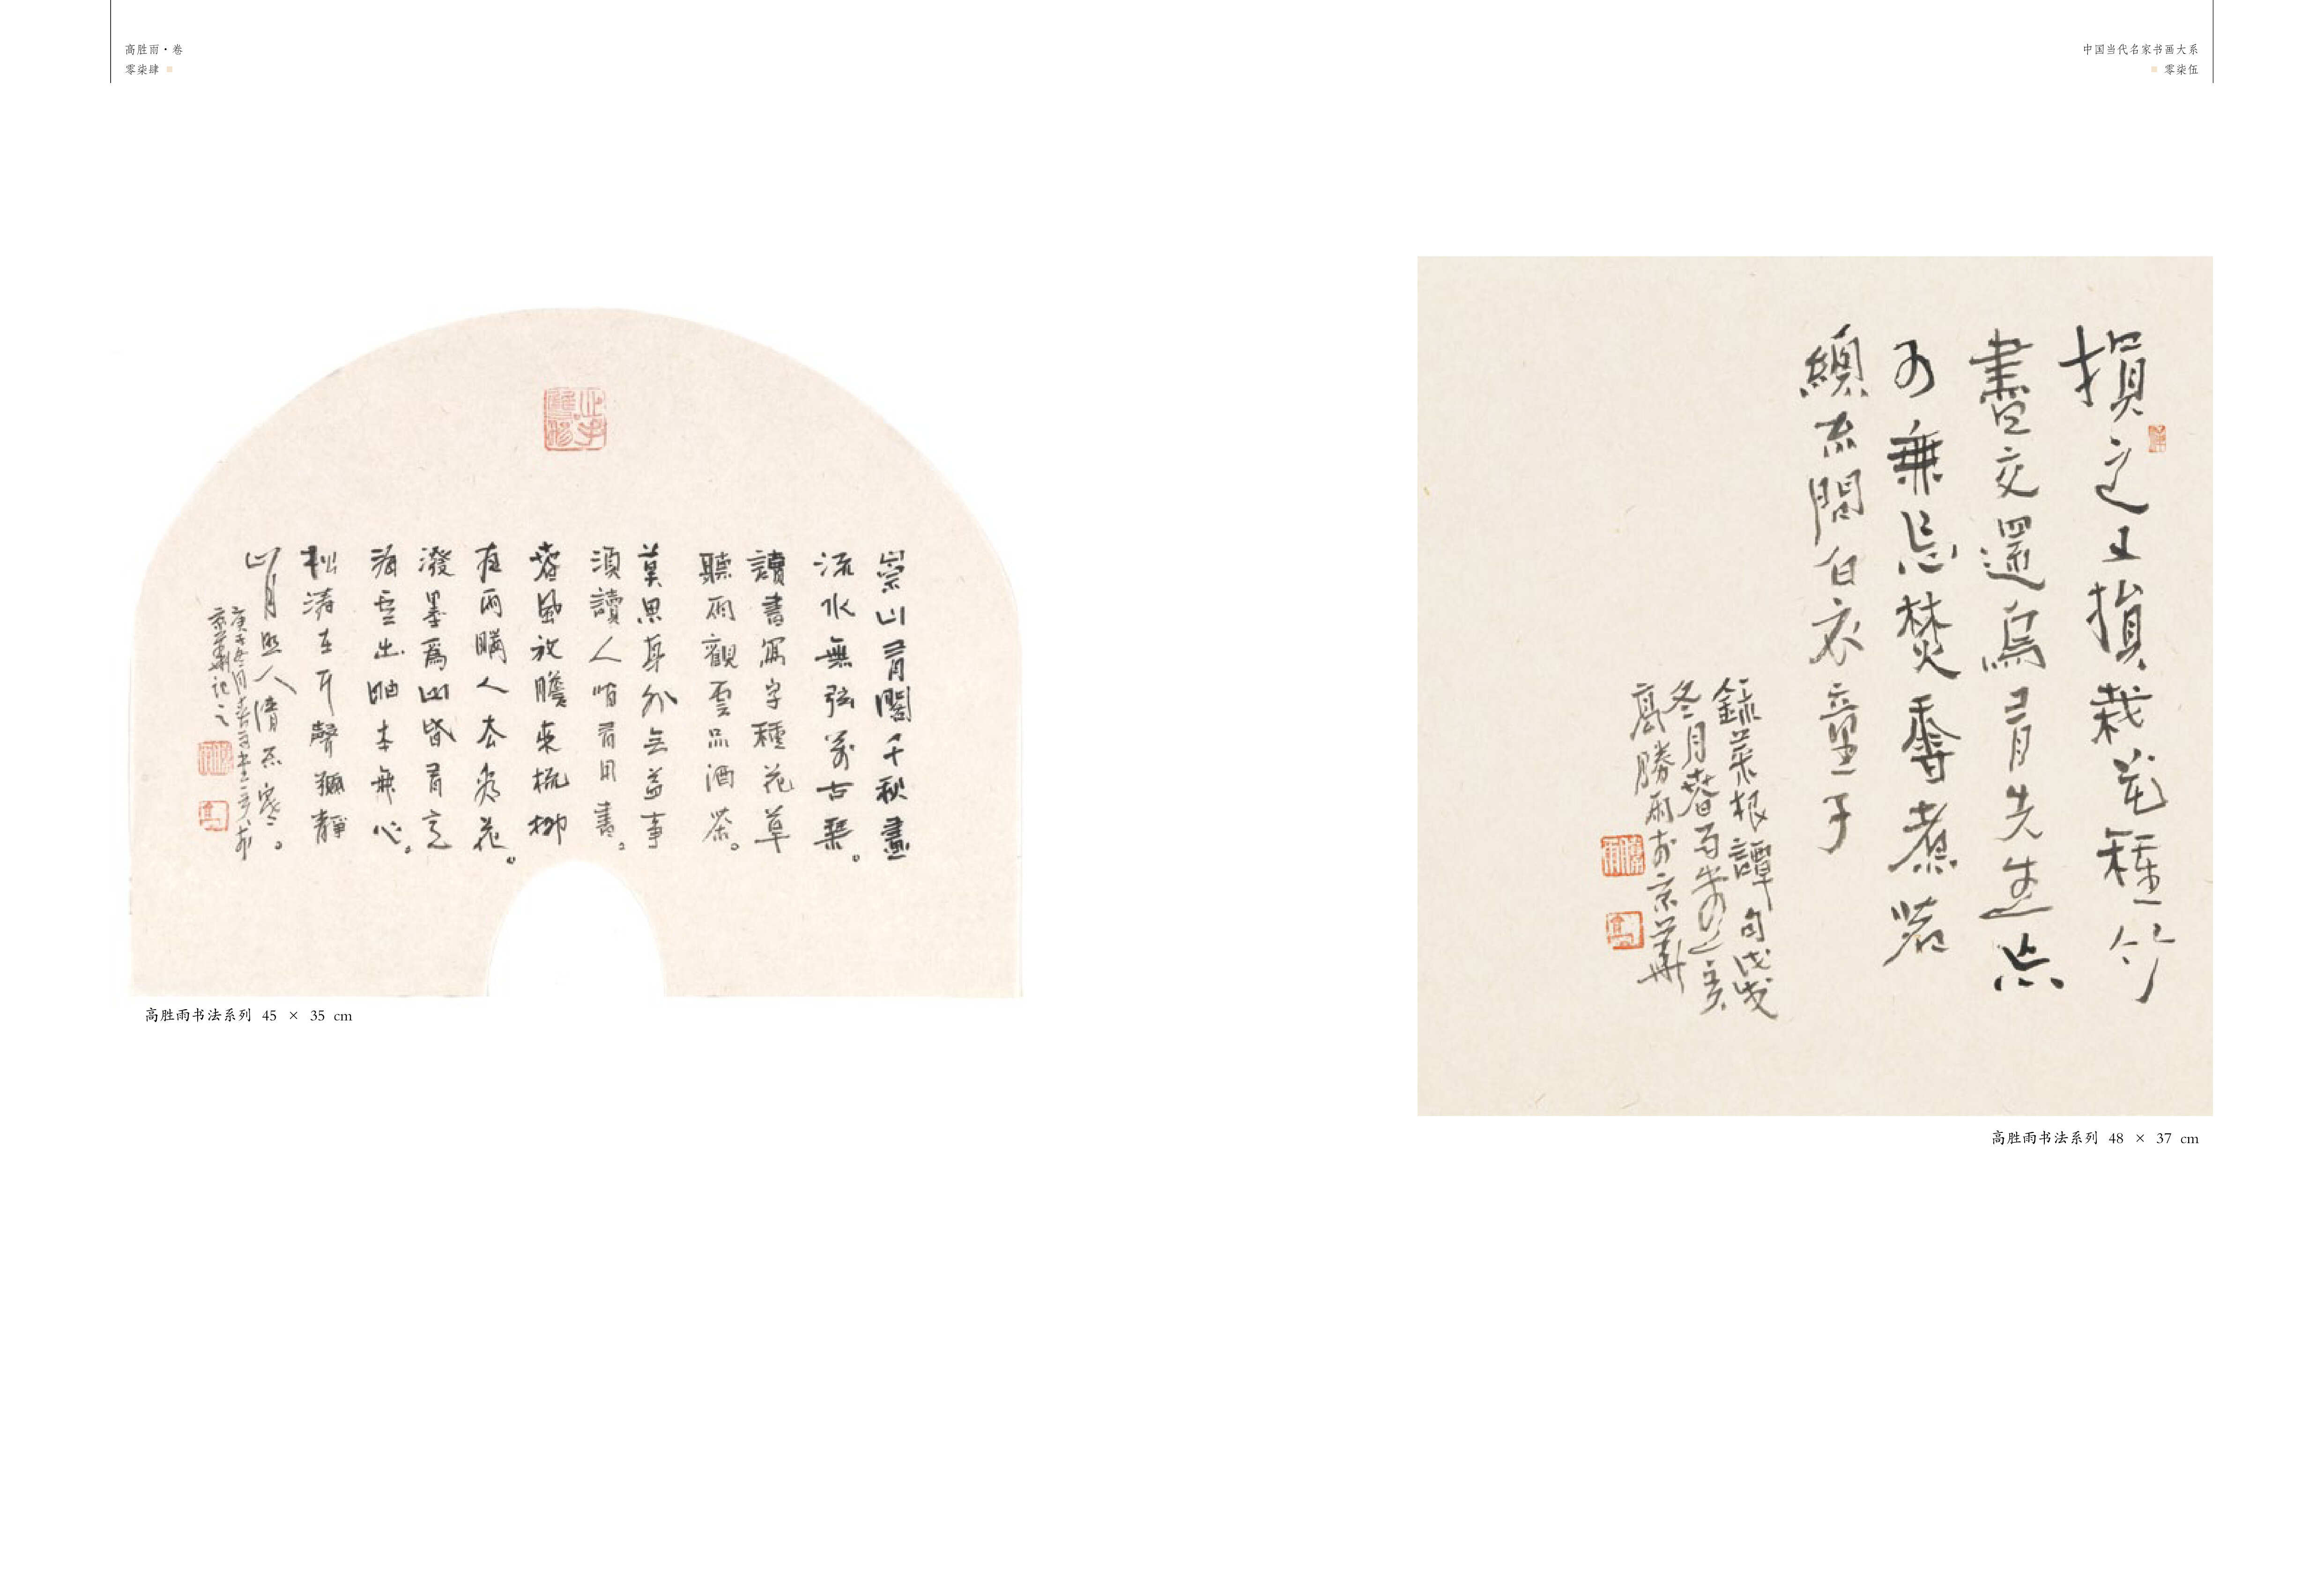 高胜雨·卷
零柒肆
崇山有阁千秋畫
流水無弦萬古琴。
讀書寫字種花草
聽雨觀雲品酒茶。
莫思身外無益事
須讀人間有用書。
春風放膽來梳柳
夜雨瞞人去潤花。
潑墨為山皆有意
海雲出岫本無心。
松濤在耳聲彌靜
山月照人清不寒。
庚子冬月
京華記之
高胜雨书法系列 45 × 35 cm
中国当代名家书画大系
零柒伍
損之又損栽花種竹
盡交還烏有先生忘
可無忘焚香煮茗
總不問白衣童子
錄菜根譚句戊戌
冬月春雨
高勝雨於京華
高胜雨书法系列 48 × 37 cm